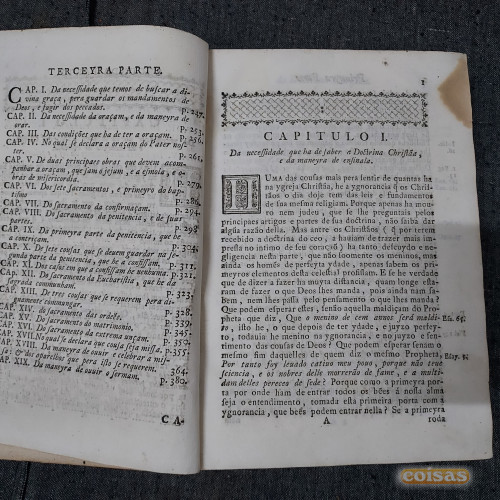 TERCEYRA PARTE.
CAP. I. Da necessidade que temos de buscar a di-
vina graça, pera guardar os mandamentos de
Deos, e fugir dos peccados. p. 247.
CAP. II. Da necessidade da oraçam, e da maneyra de
orar. p. 253.
CAP. III. Das condições que ha de ter a oraçam. p. 256.
CAP. IV. No qual se declara a oraçam do Pater nos-
ter. p. 261.
CAP. V. De duas principaes obras que devem acom-
panhar a oraçam, que sam o jejum, e a esmola, e o-
bras de misericordia. p. 279.
CAP. VI. Dos sete Sacramentos, e primeyro do bap-
tismo. p. 286.
CAP. VII. Do sacramento da confirmaçam. p. 294.
CAP. VIII. Do sacramento da penitencia, e de suas
partes. p. 298.
CAP. IX. Da primeyra parte da penitencia, que he
a contriçam. p. 304.
CAP. X. De sete cousas que se devem guardar na se-
gunda parte da penitencia, que he a confissam. p. 311.
CAP. XI. Dos casos em que a confissam he nenhuma. p. 321.
CAP. XII. Do sacramento da Eucharistia, que he da
sagrada communham. p. 323.
CAP. XIII. De tres cousas que se requerem pera di-
gnamente commungar. p. 333.
CAP. XIV. Do sacramento das ordẽs. p. 328.
CAP. XV. Do sacramento do matrimonio. p. 343.
CAP. XVI. Do sacramento da extrema unçam. p. 351.
CAP. XVII. No qual se declara que cousa seja missa. p. 355.
CAP. XVIII. Da maneyra de ouvir e celebrar a mis-
sa: & dos aparelhos que pera isso se requerem. 364.
CAP. XIX. Da maneyra de ouvir e formam. p. 380.
C A-
1
CAPITULO I.
Da necessidade que ha de saber a Doctrina Christãa,
e da maneyra de ensinala.
HUMA das cousas mais pera sentir de quantas ha
na ygreja Christãa, he a ygnorancia q̃ os Chris-
tãos o dia doje tem das leis e fundamentos
de sua mesma religiam. Porque apenas ha mou-
ro nem judeu, que se lhe preguntas pelos
principaes artigos e partes de sua doctrina, nam saiba dar
algũa razão della. Mas antre os Christãos ( q̃ por terem
recebido a doctrina do ceo, a haviam de trazer mais im-
pressa no intimo de seu coraçaõ ) ha tanto descuydo e ne-
gligencia nesta parte, que nam soomente os meninos, mas
ainda os homẽs de perfeyta ydade, apenas sabem os pri-
meyros elementos desta celestial profissam. E se he verdade
que de dizer a fazer ha muyta distancia, quam longe esta-
ram de fazer o que Deos lhes manda, pois ainda nam sa-
bem, nem lhes passa pelo pensamento o que lhes manda?
Que podem esperar estes, senão aquella maldiçam do Pro-
pheta que diz, Que o menino de cem annos serà maldi-
to, isso he, o que depois de ter ydade, e juyzo perfey-
to, todavia he menino na ygnorancia, e no juyzo, e no
sentimento das cousas de Deos? Que podem esperar senam o
mesmo fim daquelles de quem diz o mesmo Propheta,
Por tanto foy levado cativo meu povo, porque não true
sciencia, e os nobres delle morrerão de fame, e a multi-
dam delles pereceo de sede? Porque como a primeyra por-
ta por onde ham de entrar todos os bẽes á nossa alma
seja o entendimento, tomada esta primeyra porta com a
ygnorancia, que bẽes podem entrar nella? Se a primeyra
A
roda
coisas